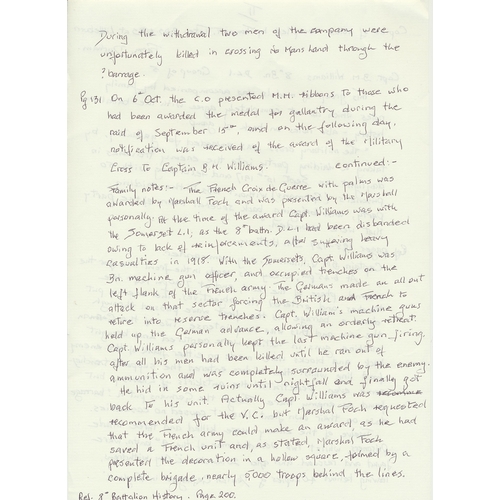 During the withdrawal two men of the company were
unfortunately killed in crossing No Mans land through the
? barrage.
Pg 131. On 6th Oct. the C.O presented M.M. ribbons to those who
had been awarded the medal for gallantry during the
raid of September 15th, and on the following day,
notification was received of the award of the Military
Cross to Captain B H. Williams. continued:-
Family notes:- The French Croix de Guerre with palms was
awarded by Marshall Foch and was presented by the Marshall
personally. At the time of the award Capt. Williams was with
the Somerset L.I, as the 8th battn. D.L.I had been disbanded
owing to lack of reinforcements, after suffering heavy
casualties in 1918. With the Somersets, Capt. Williams was
Bn. machine gun officer, and occupied trenches on the
left flank of the French army. The Germans made an all out
attack on that sector forcing the British and French to
retire into reserve trenches. Capt. William's machine guns
held up the German advance, allowing an orderly retreat.
Capt. Williams personally kept the last machine gun firing
after all his men had been killed until he ran out of
ammunition and was completely surrounded by the enemy.
He hid in some ruins until nightfall and finally got
back to his unit. Actually Capt Williams was
recommended for the V.C. but Marshal Foch requested
that the French army could make an award, as he had
saved a French unit and, as stated, Marshal Foch
presented the decoration in a hollow square, formed by a
complete brigade, nearly 5,000 troops behind the lines.
Ref. 8th Battalion History. Page 200.